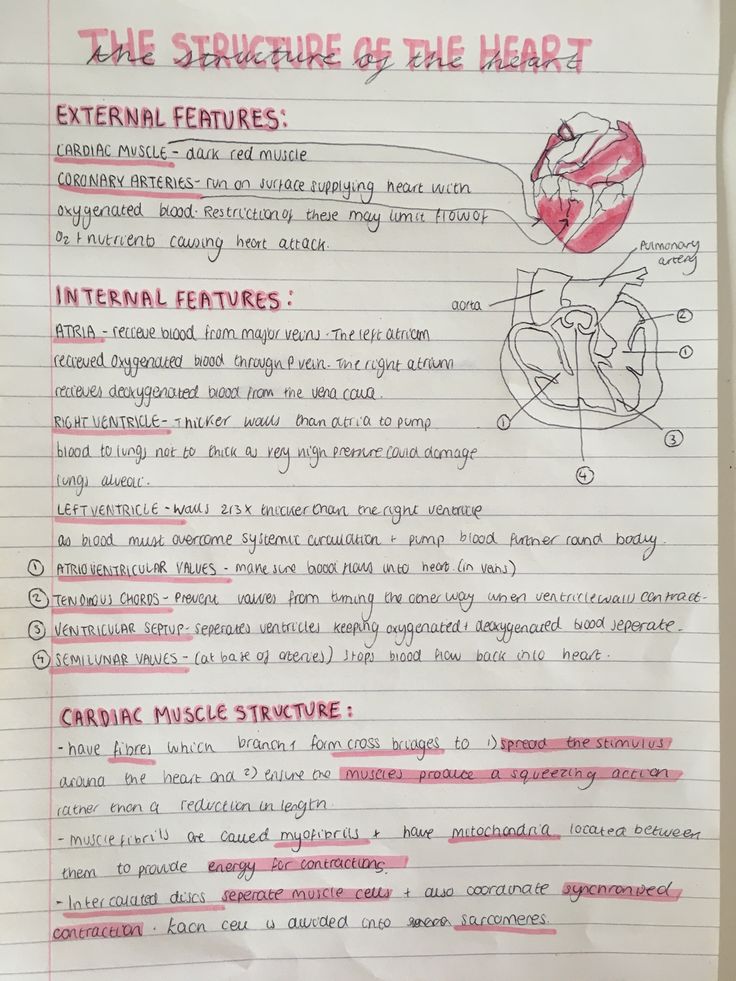 THE STRUCTURE OF THE HEART
the structure of the heart
EXTERNAL FEATURES:
CARDIAC MUSCLE - dark red muscle
CORONARY ARTERIES - run on surface supplying heart with
oxygenated blood. Restriction of these may limit flow of
O2 + nutrients causing heart attack.
Pulmonary
artery
aorta
2
1
1
3
4
INTERNAL FEATURES:
ATRIA - recieve blood from major veins. The left atrium
recieved oxygenated blood through P vein. The right atrium
recieves deoxygenated blood from the vena cava.
RIGHT VENTRICLE - Thicker walls than atria to pump
blood to lungs not to thick as very high pressure could damage
lungs alveoli.
LEFT VENTRICLE - walls 2/3x thicker than the right ventricle
as blood must overcome systemic circulation + pump blood further round body.
1 ATRIOVENTRICULAR VALVES - make sure blood flows into heart. (in veins)
2 TENDINOUS CHORDS - Prevent valves from turning the other way when ventricle wall contract.
3 VENTRICULAR SEPTUP - seperates ventricles keeping oxygenated + deoxygenated blood seperate.
4 SEMILUNAR VALVES - (at base of arteries) stops blood flow back into heart.
CARDIAC MUSCLE STRUCTURE:
- have fibres which branch + form cross bridges to 1) spread the stimulus
around the heart and 2) ensure the muscles produce a squeezing action
rather than a reduction in length.
- muscle fibrils are called myofibrils + have mitochondria located between
them to provide energy for contractions.
- Intercalated discs seperate muscle cells + also coordinate synchronised
contraction. Each cell is divided into sarcomeres.